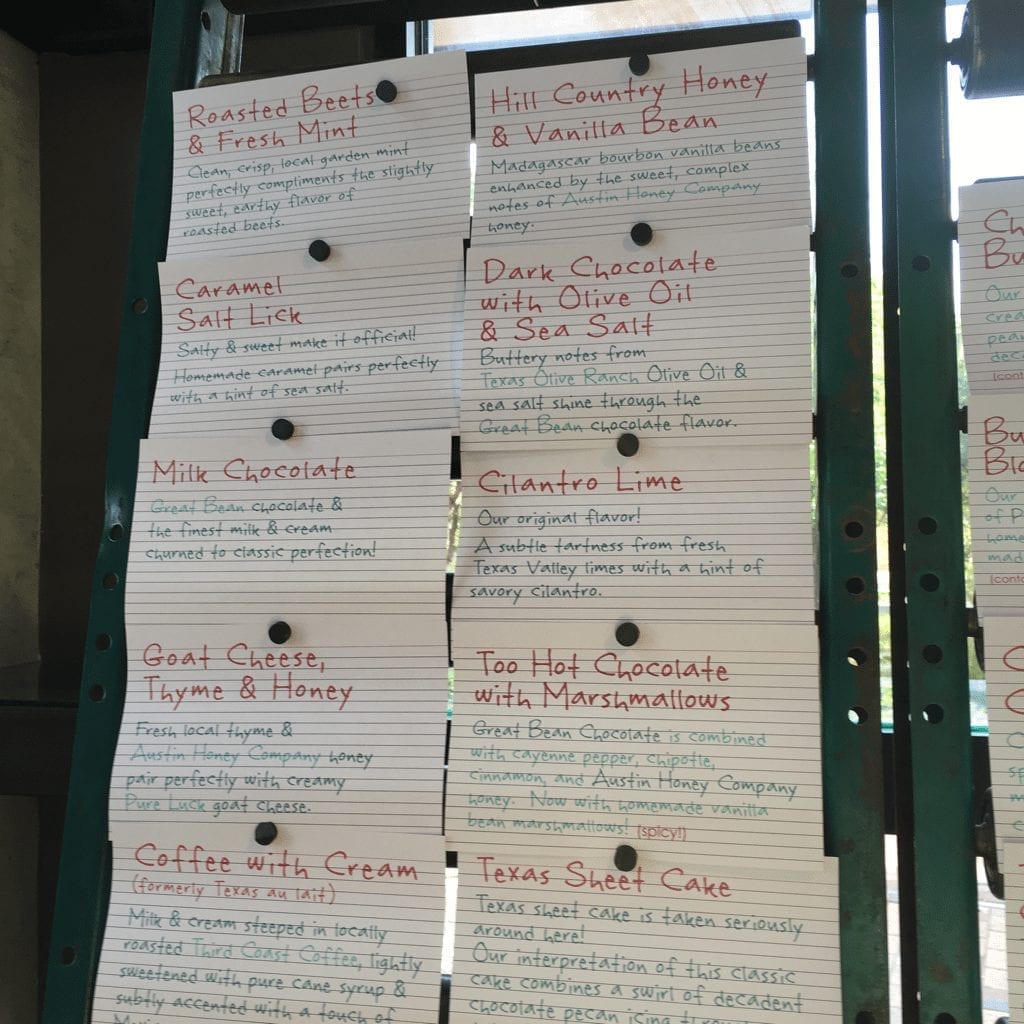 Roasted Beets
& Fresh Mint
Clean, crisp, local garden mint
perfectly compliments the slightly
sweet, earthy flavor of
roasted beets.
Hill Country Honey
& Vanilla Bean
Madagascar bourbon vanilla beans
enhanced by the sweet, complex
notes of Austin Honey Company
honey.
Caramel
Salt Lick
Salty & sweet make it official!
Homemade caramel pairs perfectly
with a hint of sea salt.
Dark Chocolate
with Olive Oil
& Sea Salt
Buttery notes from
Texas Olive Ranch Olive Oil &
sea salt shine through the
Great Bean chocolate flavor.
Milk Chocolate
Great Bean chocolate &
the finest milk & cream
churned to classic perfection!
Cilantro Lime
Our original flavor!
A subtle tartness from fresh
Texas Valley limes with a hint of
savory cilantro.
Goat Cheese,
Thyme & Honey
Fresh local thyme &
Austin Honey Company honey
pair perfectly with creamy
Pure Luck goat cheese.
Too Hot Chocolate
with Marshmallows
Great Bean Chocolate is combined
with cayenne pepper, chipotle,
cinnamon, and Austin Honey Company
honey. Now with homemade vanilla
bean marshmallows! (spicy!)
Coffee with Cream
(formerly Texas au lait)
Milk & cream steeped in locally
roasted Third Coast Coffee, lightly
sweetened with pure cane syrup &
subtly accented with a touch of
Texas Sheet Cake
Texas sheet cake is taken seriously
around here!
Our interpretation of this classic
cake combines a swirl of decadent
chocolate pecan icing through
Our
Our
of P